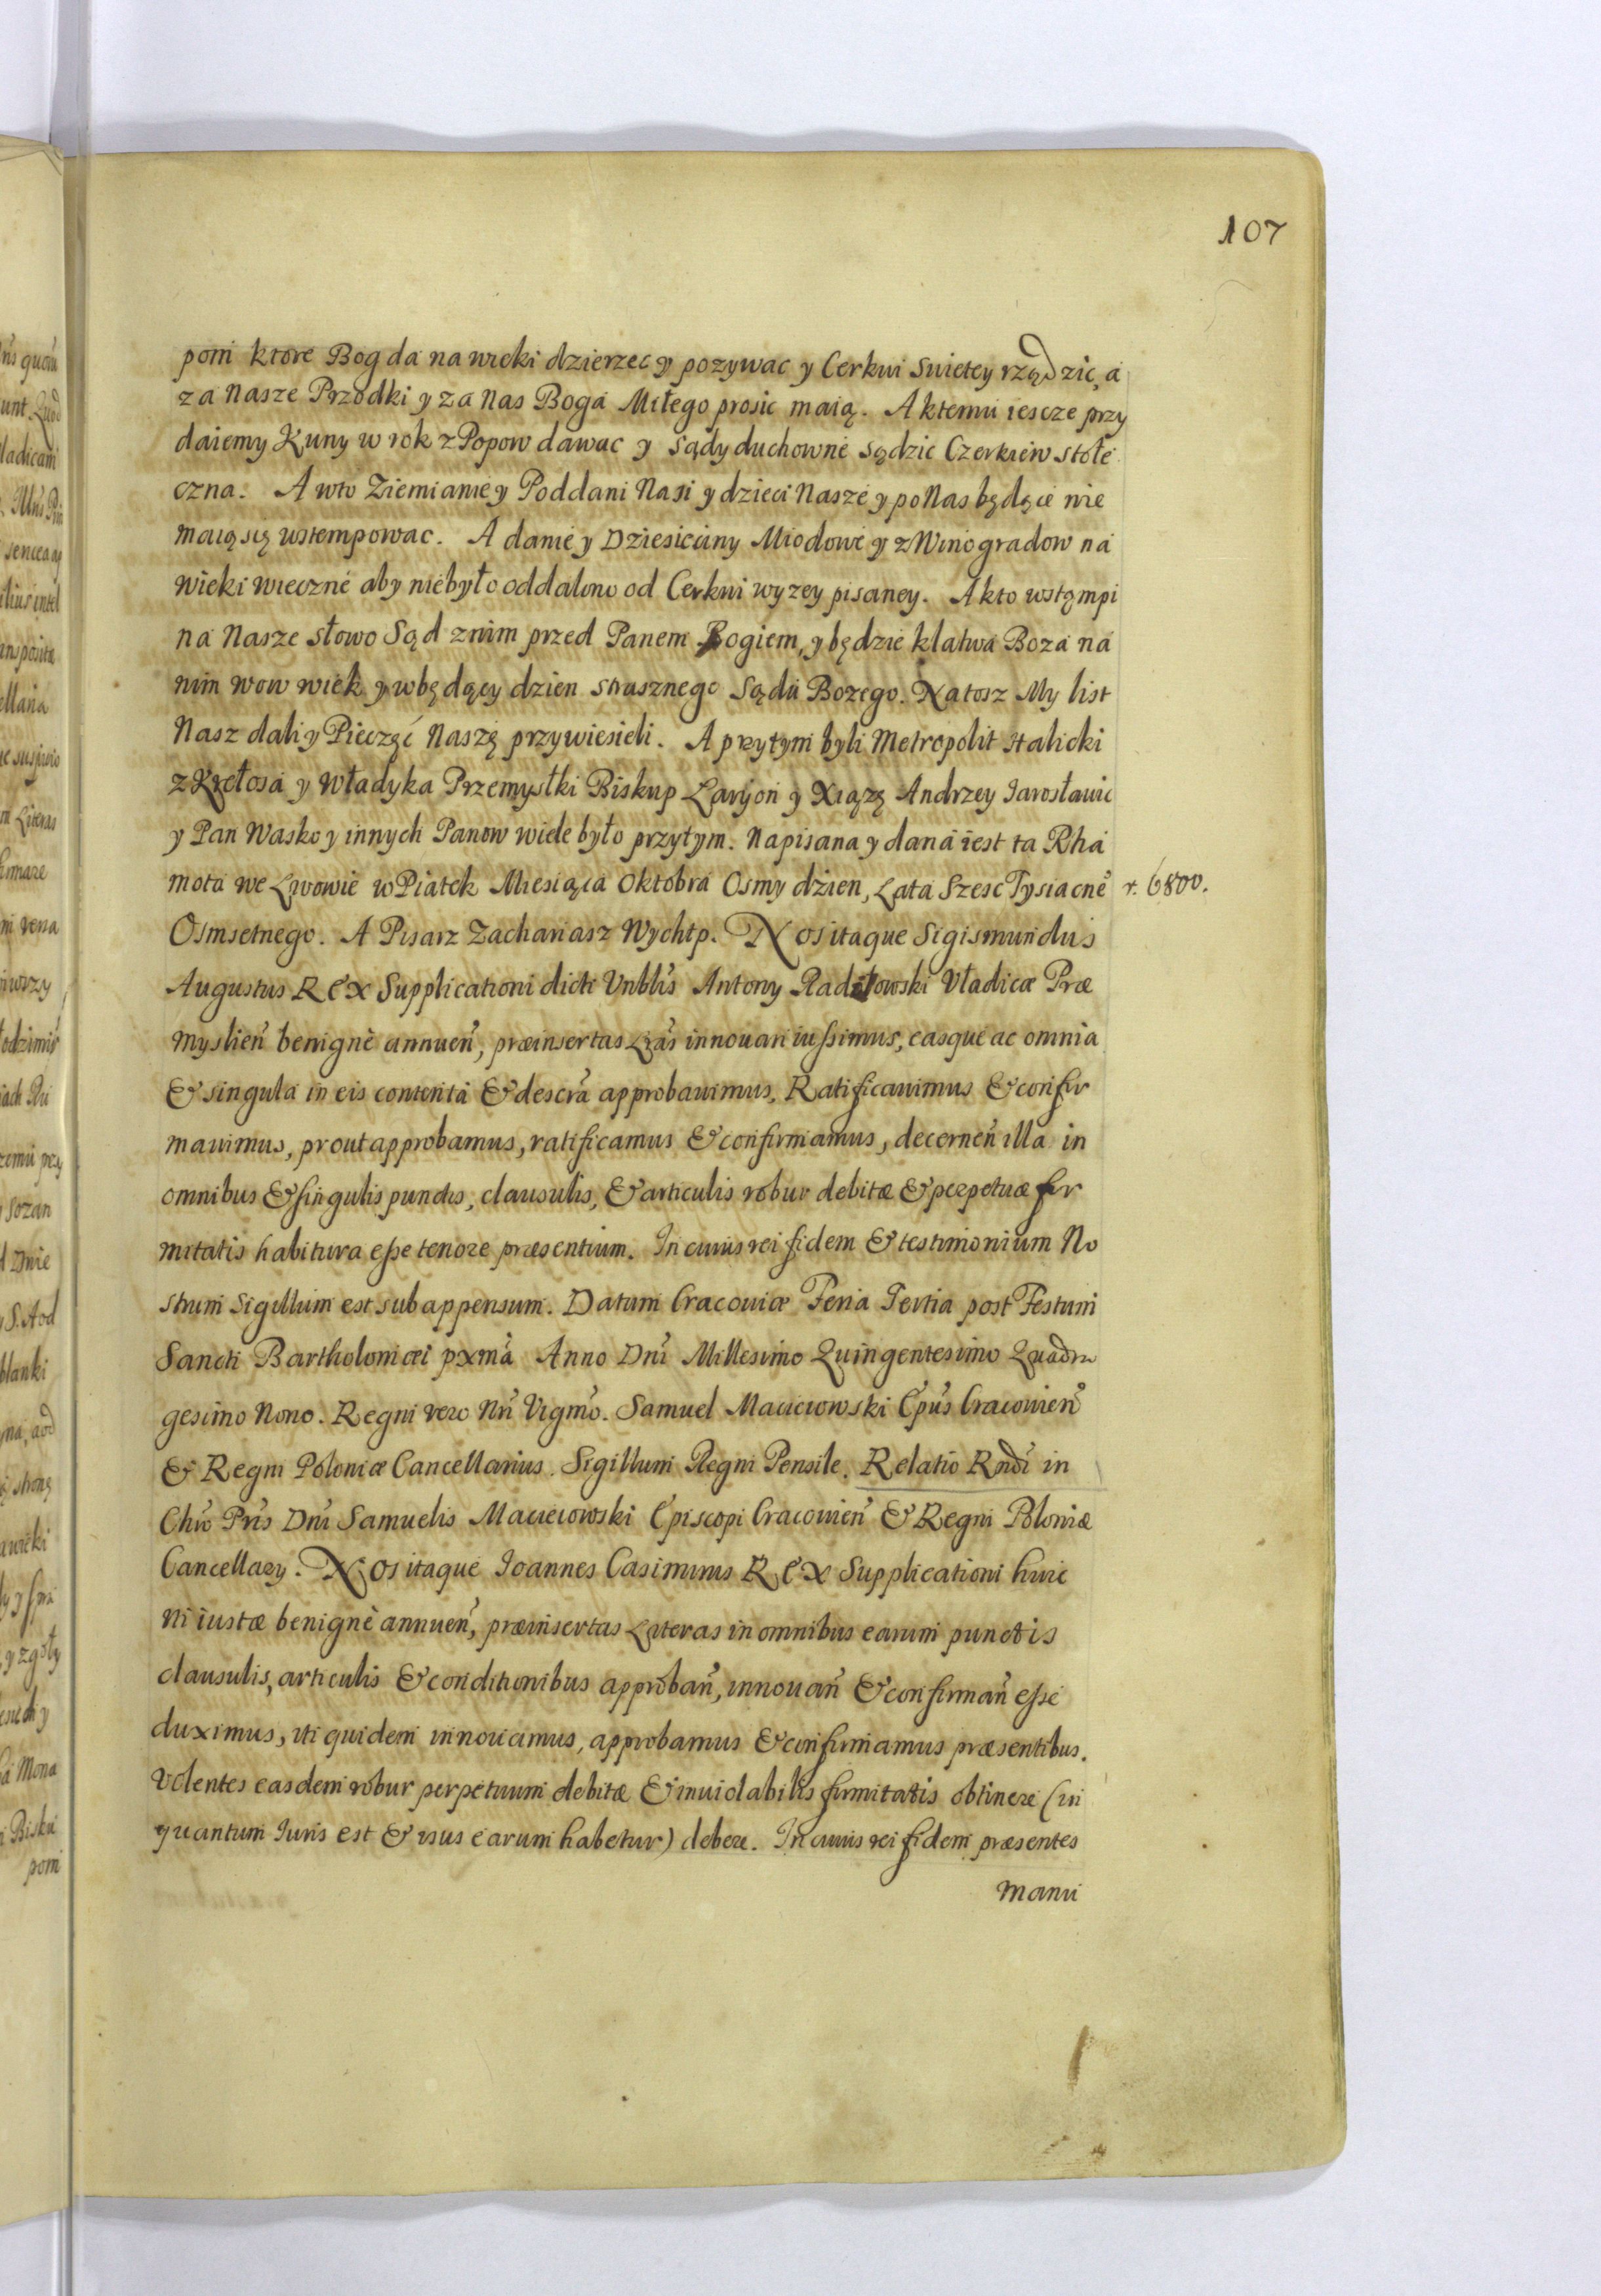 107
pom ktore Bog da na wieki dzierzec y pozywac y Cerkwi Swietey rządzic, a
za Nasze Przodki y za Nas Boga Miłego prosic maią. A ktemu iescze przy
daiemy Kuny w rok z Popow dawac y sądy duchowne sądzic Czerkiew stołe
czna. A wto Ziemianie y Poddani Nasi y dzieci Nasze y po Nas będące nie
maią się wstempowac. A danie y Dziesieciny Miodowe y z Winogradow na
wieki wieczne aby niebyło oddalono od Cerkwi wyzey pisaney. A kto wstąmpi
na Nasze słowo Sąd znim przed Panem Bogiem, y będzie klatwa Boza na
nim wow wiek y wbędący dzien strusznego Sądu Bozego. Na tosz My list
Nasz dali y Pieczęć Naszę przywiesieli. A przytym byli Metropolit Halicki
z Kręłosa y Władyka Przemysłki Biskup Laryon y Xiązę Andrzey Iarosławic
y Pan Wasko y innych Panow wiele było przytym. Napisana y dana iest ta Rha
mota we Lwowie w Piątek Miesiąca Oktobra Osmy dzien, Lata Szesc Tysiacne
r. 6800.
Osmsetnego. A Pisarz Zachariasz Wychtp. Nos itaque Sigismundus
Augustus Rex Supplicationi dicti Vnblis Antony Radiłowski Vładicæ Præ
myslien benignè annuen, præinsertas Lras innouari iussimus, easque ac omnia
& singula in eis contenta & descra approbauimus, Ratificauimus & confir
mauimus, prout approbamus, ratificamus & confirmamus, decernen illa in
omnibus & singulis punctis, clausulis, & articulis robur debitæ & perpetuæ fir
mitatis habitura esse tenore præsentium. In cuius rei fidem & testimonium No
strum Sigillum est subappensum. Datum Cracouiæ Feria Tertia post Festum
Sancti Bartholomæi pxma Anno Dni Millesimo Quingentesimo Quadra
gesimo Nono. Regni vero Nri Vigmo. Samuel Macieiowski Epus Cracouien
& Regni Poloniæ Cancellarius. Sigillum Regni Pensile. Relatio Rndi in
Chro Pris Dni Samuelis Macieiowski Episcopi Cracouien & Regni Poloniæ
Cancellary. Nos itaque Ioannes Casimirus Rex Supplicationi huic
ni iustæ benignè annuen, præinsertas Literas in omnibus earum punctis
clausulis, articulis & conditionibus approban, innouan & confirman esse
duximus, vti quidem innouamus, approbamus & confirmamus præsentibus.
Volentes easdem robur perpetuum debitæ & inuiolabilis firmitatis obtinere (in
quantum Iuris est & vsus earum habetur) debere. In cuius rei fidem præsentes
manu